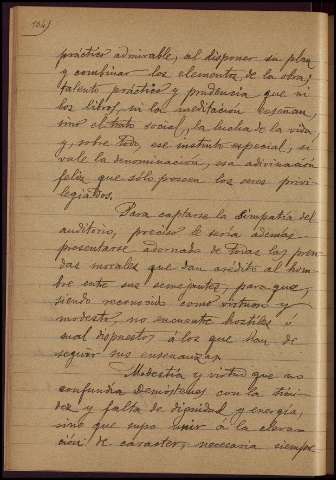 práctico admirable, al disponer su plan
y combinar los elementos de la obra;
talento práctico y prudencia que ni
los libros, ni la meditación enseñan,
sino el trato social, la lucha de la vida,
y, sobre todo, ese instinto especial, si
vale la denominación, esa adivinación
feliz que sólo poseen los seres privi-
legiados.
Para captarse la simpatía del
auditorio, preciso le sería además
presentarse adornado de todas las pren-
das morales que dan crédito al hom-
bre entre sus semejantes, para que,
siendo reconocido como virtuoso y
modesto, no encuentre hostiles ó
mal dispuestos á los que han de
seguir sus enseñanzas.
Modestia y virtud que no
confundía Demóstenes con la timi-
dez y falta de dignidad y energía,
sino que supo unir á la eleva-
ción de carácter, necesaria siempre